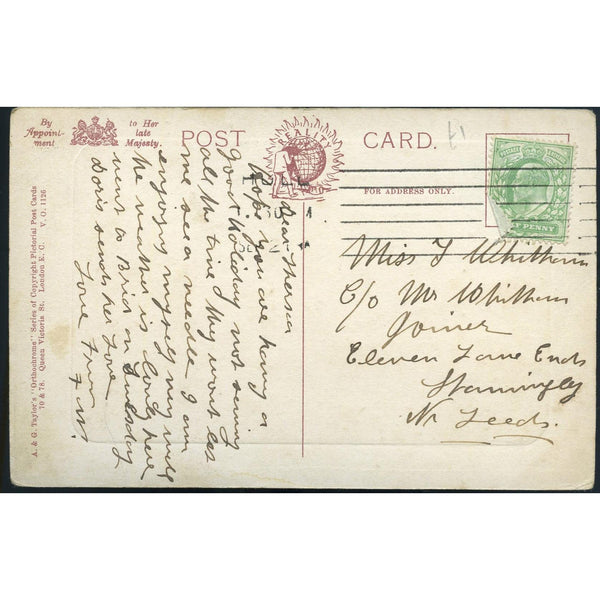 By
Appoint-
ment.
to Her
late
Majesty.
POST
CARD.
REALITY
FOR ADDRESS ONLY.
£1
A. & G. Taylor's "Orthochrome" Series of Copyright Pictorial Post Cards
70 & 78. Queen Victoria St. London E. C. V. O. 1126
Dear Theresa
Hope you are having a
good holiday, not sewing
all the time / they wont let
me see a needle I am
enjoying myself very well
the weather is lovely here
went to Brid on Tuesday
Doris sends her love
Love from
F. W.
Miss T Whitham
C/o Mr Whitham
Joiner
Eleven Lane Ends
Stanningley
Nr Leeds.
PENNY